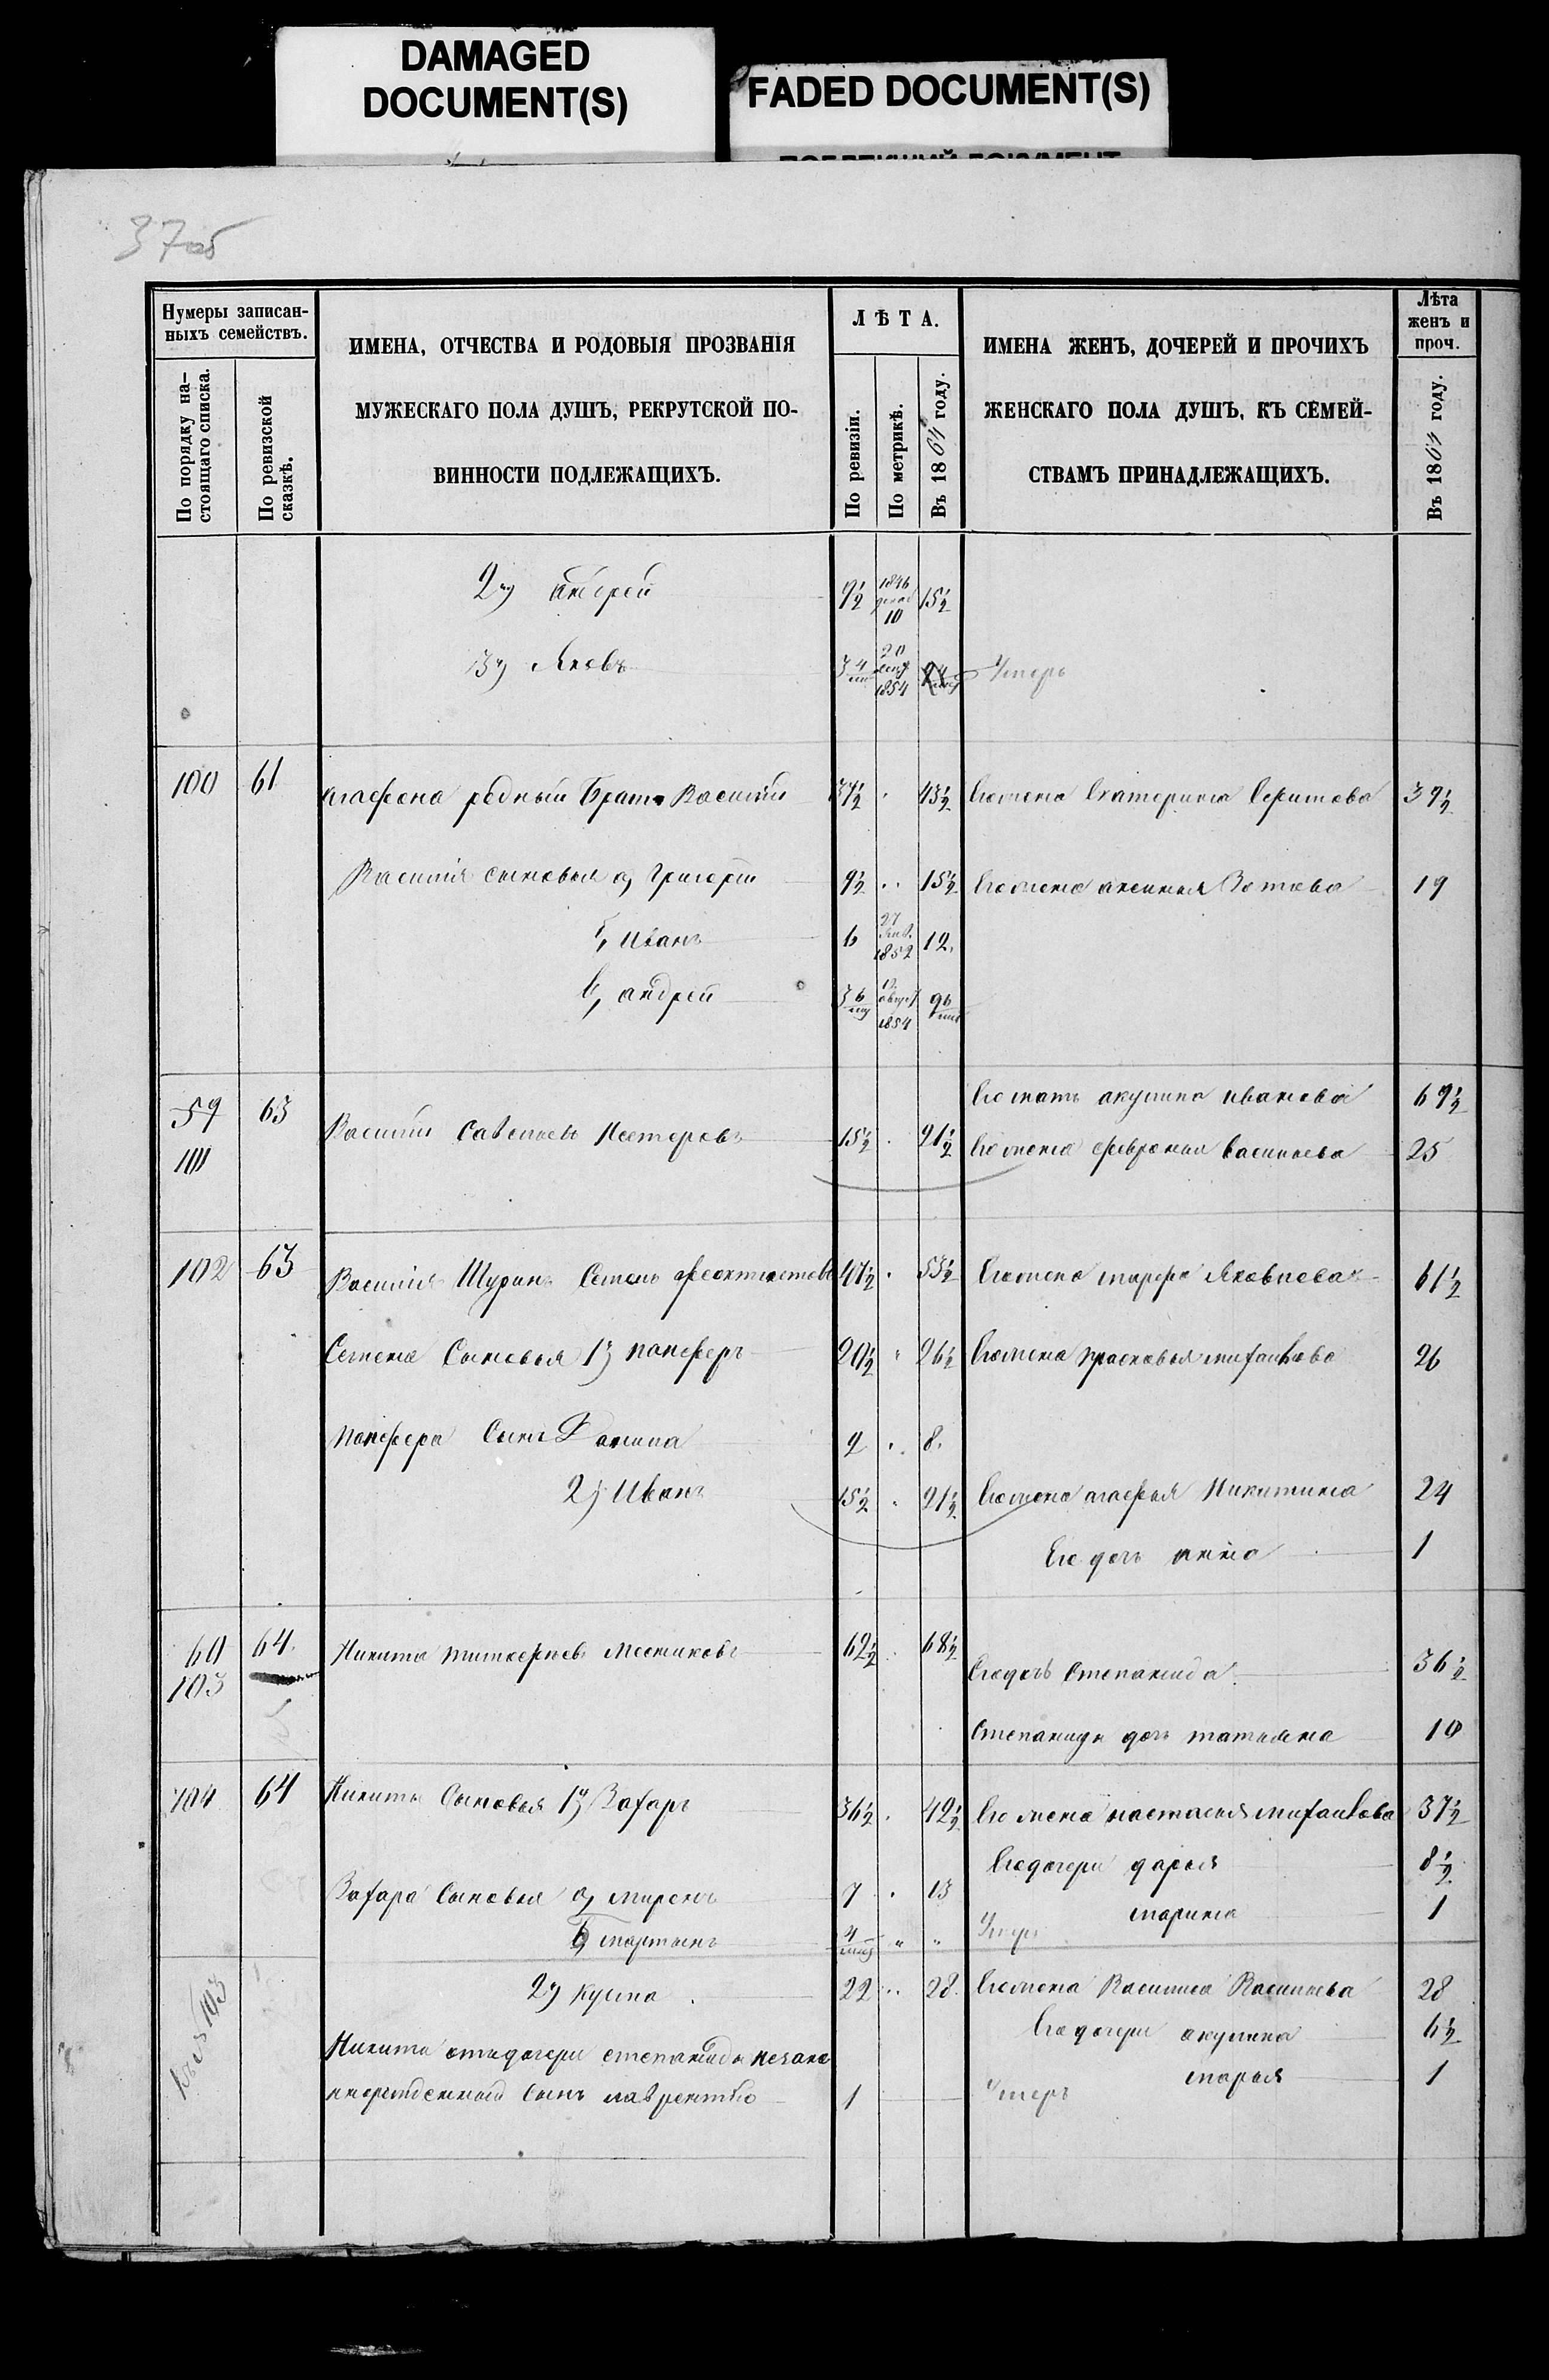 DAMAGED
DOCUMENT(S)
FADED DOCUMENT(S)
37об
Нумеры записан-
ныхъ семействъ.
По порядку на-
стоящаго списка.
По ревизской
сказкѣ.
ИМЕНА, ОТЧЕСТВА И РОДОВЫЯ ПРОЗВАНІЯ
МУЖЕСКАГО ПОЛА ДУШЪ, РЕКРУТСКОЙ ПО-
ВИННОСТИ ПОДЛЕЖАЩИХЪ.
ЛѢТА.
По ревизіи.
По метрикѣ.
Въ 1864 году.
ИМЕНА ЖЕНЪ, ДОЧЕРЕЙ И ПРОЧИХЪ
ЖЕНСКАГО ПОЛА ДУШЪ, КЪ СЕМЕЙ-
СТВАМЪ ПРИНАДЛЕЖАЩИХЪ.
Лѣта
женъ и
проч.
Въ 1864 году.
2й андрей 9½ 1846 10 15½
3й Яковъ 3 4 20 1854 Умеръ
100 61 агафона родный братъ Василий 37½ 43½ Его жена Екатерина 39½
Василия сыновья а, Григорий 9½ 15½ Его жена аксинья Зотова 19
б, Иванъ 6 27 1852 12
в, андрей 3 6 1854 9 6
Его мать акулина иванова 69½
59 63 Василий Савельевъ Нестеровъ 15½ 21½ Его жена февронья васильева 25
101
102 63 Василий Шуринъ Семенъ феоктистовъ 47½ 53½ Его жена марфа Яковлева 61½
Семена Сыновья 1й панферъ 20½ 26½ Его жена прасковья михайлова 26
панфера Сынъ Данила 2 8
2й Иванъ 15½ 21½ Его жена агафья Никитина 24
Его дочь анна 1
60 64 Никита 62½ 68½
103 Его дочь Степанида 36½
Степаниды дочь татьяна 10
104 64 Никиты Сыновья 1й Захаръ 36½ 42½ Его жена настасья михайлова 37½
Его дочери дарья 8½
Захара Сыновья а, миронъ 7 13
марина 1
б, мартынъ 4 Умеръ
2й кузма 22 28 Его жена Василиса Васильева 28
Его дочери акулина 6½
Никиты отъ дочери степаниды незако
марья 1
норожденный Сынъ лаврентий 1 Умеръ
103